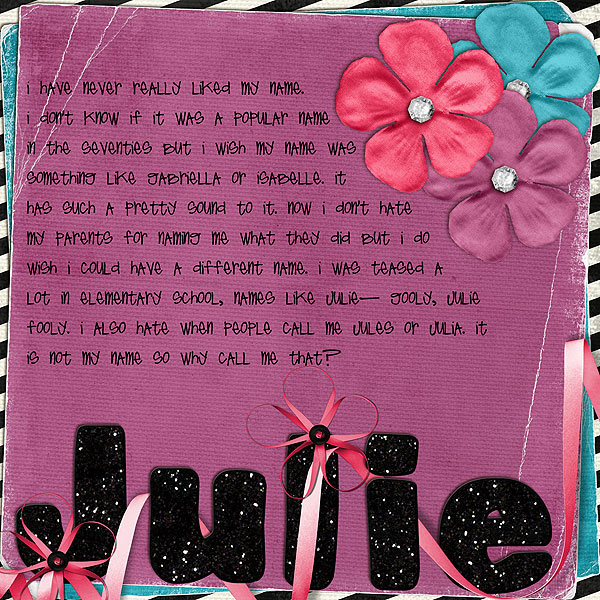 i have never really liked my name.
i don't know if it was a popular name
in the seventies but i wish my name was
something like gabriella or isabelle. it
has such a pretty sound to it. now i don't hate
my parents for naming me what they did but i do
wish i could have a different name. i was teased a
lot in elementary school, names like julie— jooly, julie
fooly. i also hate when people call me jules or julia. it
is not my name so why call me that?
Julie